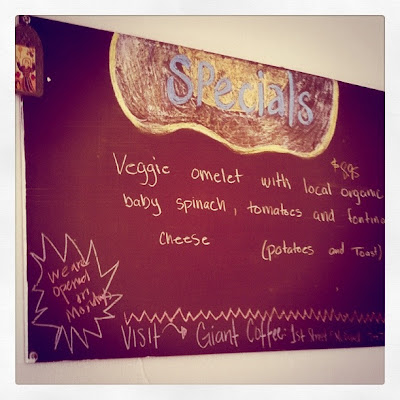 Specials
Veggie omelet with local organic $8.95
baby spinach, tomatoes and fontina
cheese (potatoes and Toast)
we are
opened
on
Mondays
Visit → Giant Coffee - 1st Street